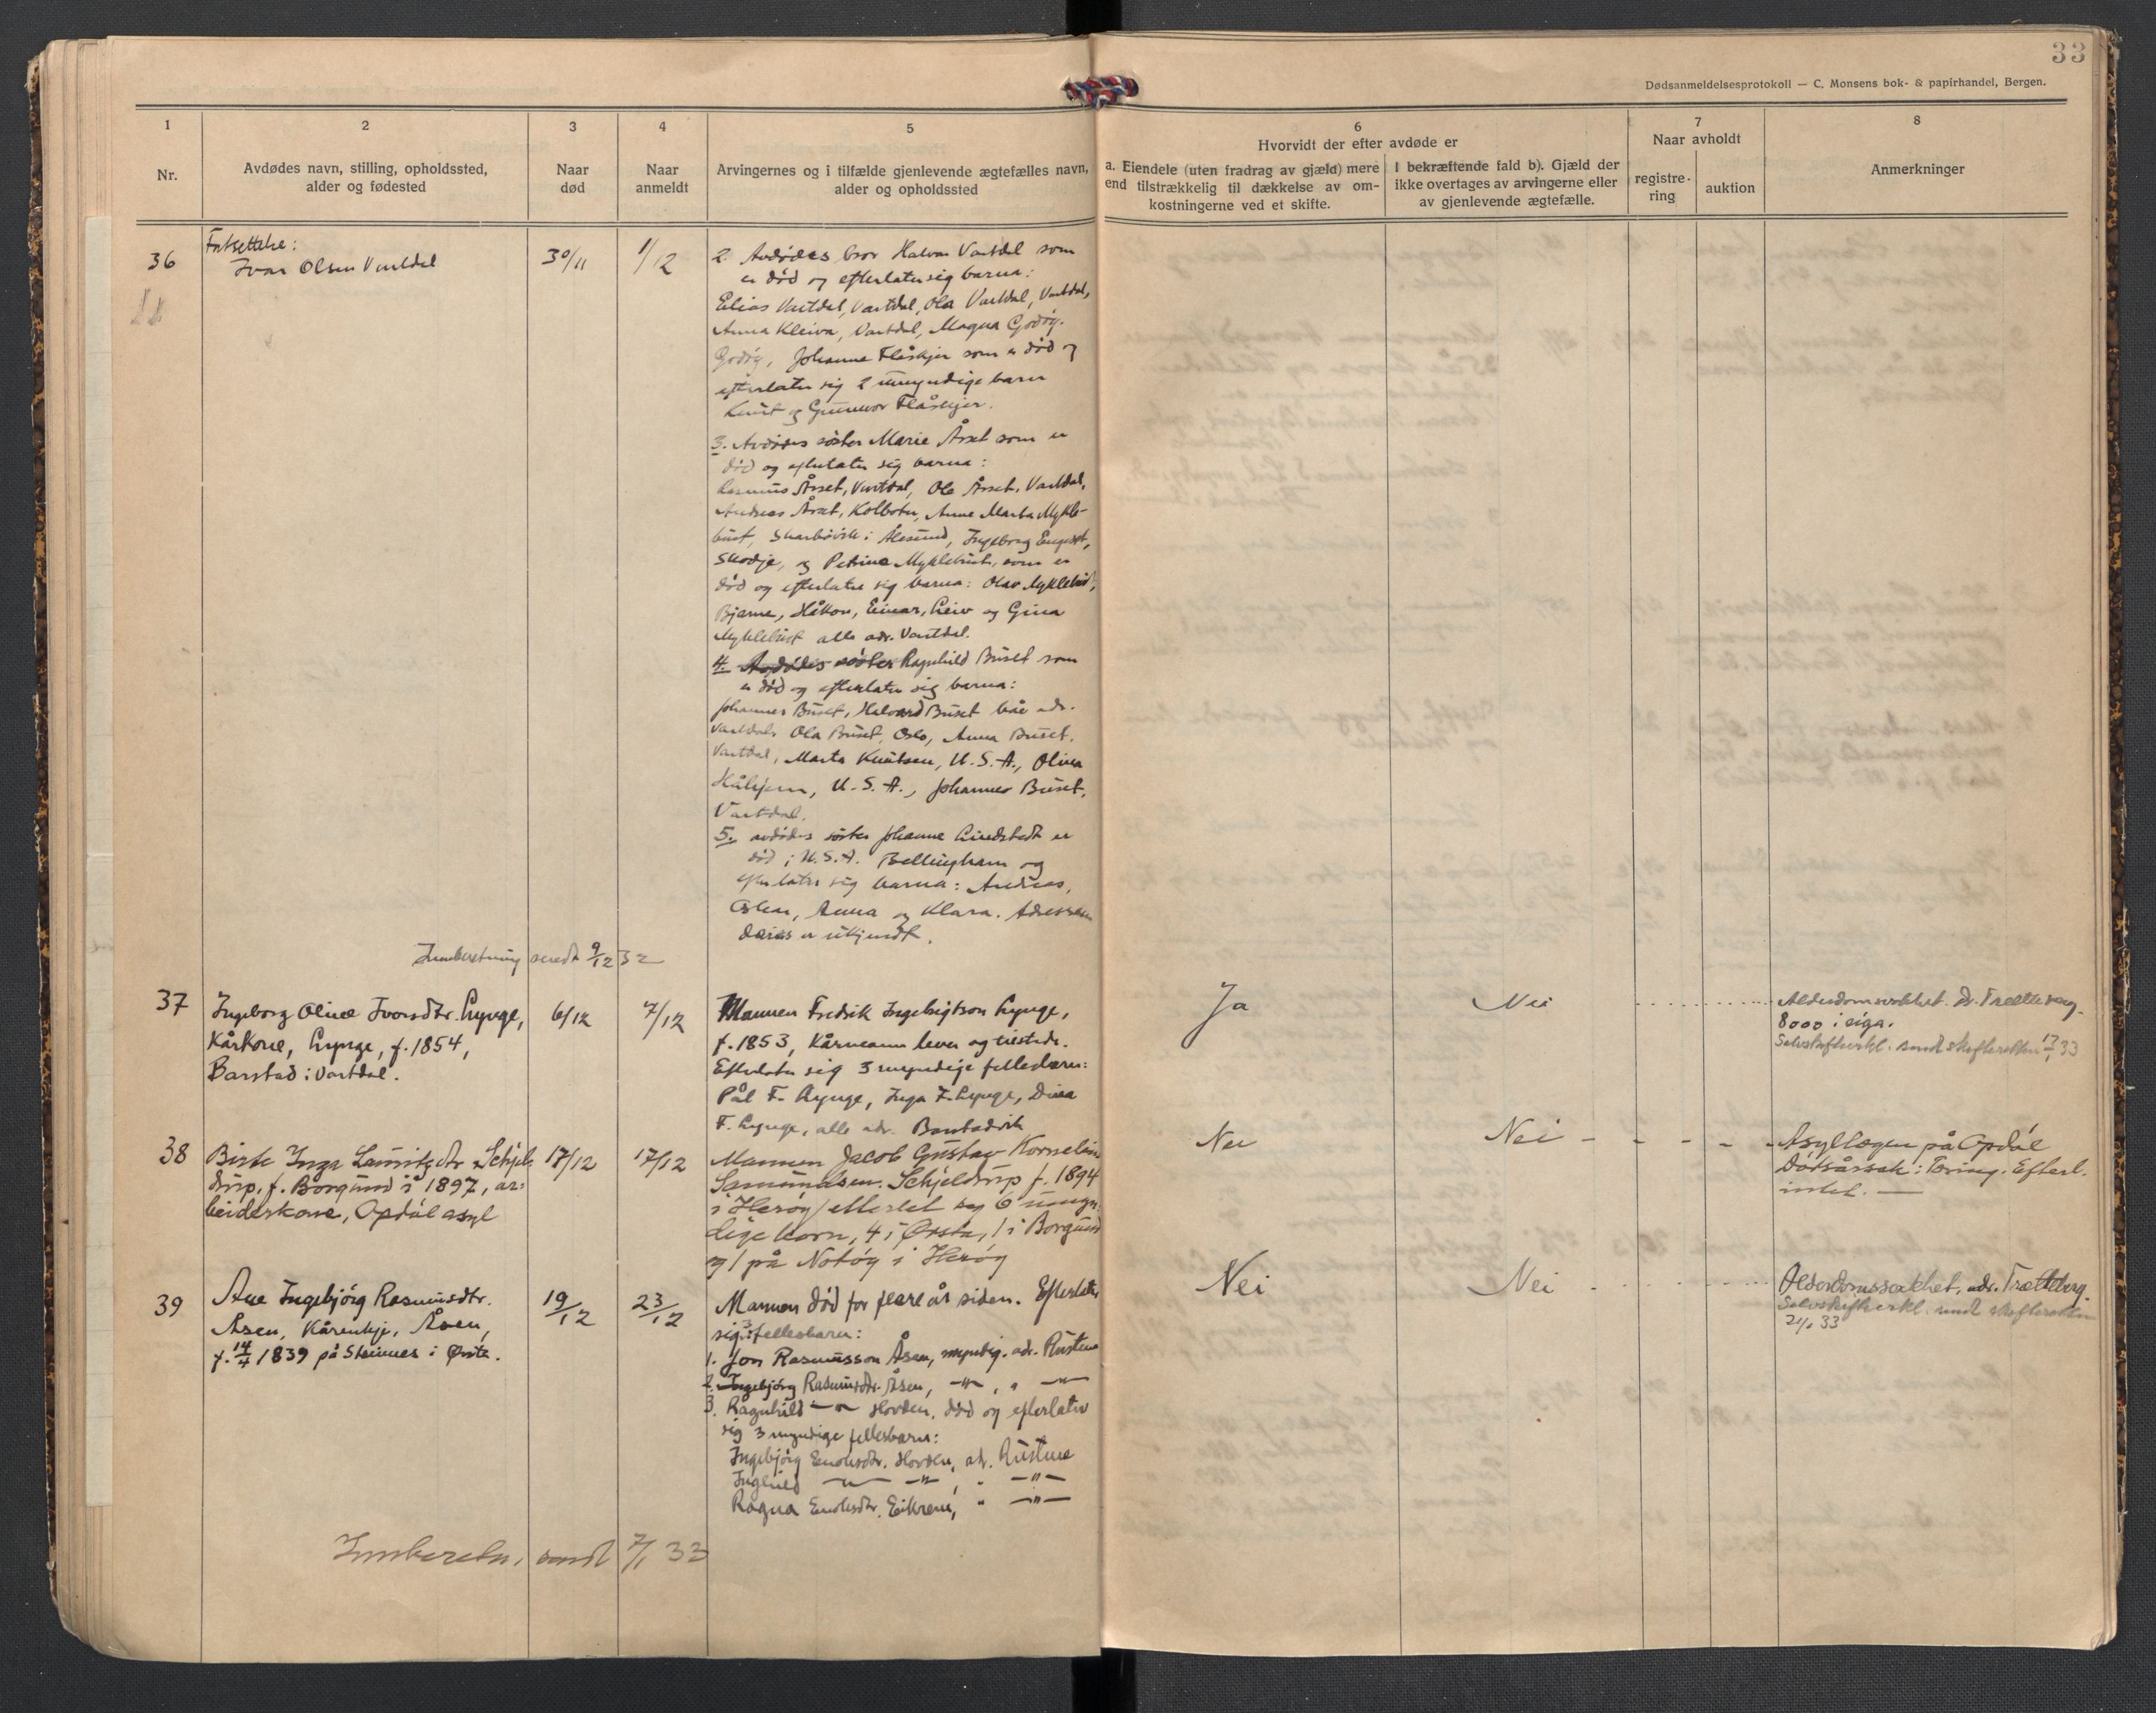 33
Dødsanmeldelsesprotokoll — C. Monsens bok- & papirhandel, Bergen.
1
Nr.
2
Avdødes navn, stilling, opholdssted,
alder og fødested
3
Naar
død
4
Naar
anmeldt
5
Arvingernes og i tilfælde gjenlevende ægtefælles navn,
alder og opholdssted
6
Hvorvidt der efter avdøde er
a. Eiendele (uten fradrag av gjæld) mere
end tilstrækkelig til dækkelse av om-
kostningerne ved et skifte.
I bekræftende fald b). Gjæld der
ikke overtages av arvingerne eller
av gjenlevende ægtefælle.
7
Naar avholdt
registre-
ring
auktion
8
Anmerkninger
36
Fortsettelse:
Ivar Olsen Vartdal
30/11
1/12
2. Avdødes bror Halvar Vartdal som
er død og efterlater sig barna:
Elias Vartdal, Vartdal, Ola Vartdal, Vartdal,
Anna Kleiva, Vartdal, Magna Godøy.
Godøy, Johanne Flåskjer som er død og
efterlater sig 2 umyndige barn
Knut og Gunnvor Flåskjer.
3. Avdødes søster Marie Årset som er
død og efterlater sig barna:
Rasmus Årset, Vartdal, Ole Årset, Vartdal,
Andreas Årset, Kolbotn, Anne Marta Mykle-
bust, Skarbøvik i Ålesund, Ingeborg Engeset,
Skodje, og Petrine Myklebust, som er
død og efterlater sig barna: Olav Myklebust,
Bjarne, Håkon, Einar, Leiv og Gina
Myklebust alle adr. Vartdal.
4. Avdødes søster Ragnhild Buset som
er død og efterlater sig barna:
Johannes Buset, Halvard Buset båe adr.
Vartdal, Ola Buset, Oslo, Anna Buset,
Vartdal, Marta Knutsen, U.S.A., Olina
Håhjem, U.S.A., Johannes Buset,
Vartdal.
5. avdødes søster Johanne Lindstedt er
død i U.S.A. Bellingham og
efterlater sig barna: Andreas,
Oskar, Anna og Klara. Adressen
deres er ukjendt.
Innberetning sendt 9/12 32
37
Ingeborg Oline Ivarsdtr. Lynge,
Kårkone, Lynge, f. 1854,
Barstad i Vartdal.
6/12
7/12
Mannen Fredrik Ingebrigtson Lynge,
f. 1853, Kårmann lever og tilstede.
Efterlater sig 3 myndige fellesbarn:
Pål F. Lynge, Inga F. Lynge, Dina
F. Lynge, alle adr. Barstadvik
Ja
Nei
Alderdomsvakhet. Dr. Trætteberg.
8000 i eiga.
Selvskifteerkl. sendt skifteretten 17/1 33
38
Birte Inga Lauritzdtr Schjel-
drup, f. Borgund i 1897, ar-
beiderkone, Opdøl asyl
17/12
17/12
Mannen Jacob Gustav Kornelius
Samuelsen Schjeldrup f. 1894
i Herøy / etterlet seg 6 umyn-
dige born, 4 i Ørsta, 1 i Borgund
og 1 på Notøy i Herøy
Nei
Nei
Asyllægen på Opdøl
Dødsårsak: Tæring. Efterl.
intet.
39
Ane Ingebjørg Rasmusdtr.
Åsen, Kårenkje, Åsen,
f. 14/4 1839 på Steinnes i Ørsta.
19/12
23/12
Mannen død for flere år siden. Efterlater
sig 3 fellesbarn:
1. Jon Rasmusson Åsen, myndig. adr. Rustene
2. Ingebjørg Rasmusdtr. Åsen, —"—, " —"—
3. Ragnhild —"— Hovden, død og efterlater
sig 3 myndige fellesbarn:
Ingebjørg Enoksdtr. Hovden, ad. Rustene
Inghild —"— —"—, " —"—
Ragna Enoksdtr. Eikrem, " —"—
Nei
Nei
Alderdomssvakhet, adr. Trætteberg.
Selvskifteerkl. sendt skifteretten
2/1 33
Innberetn. sendt 7/1 33